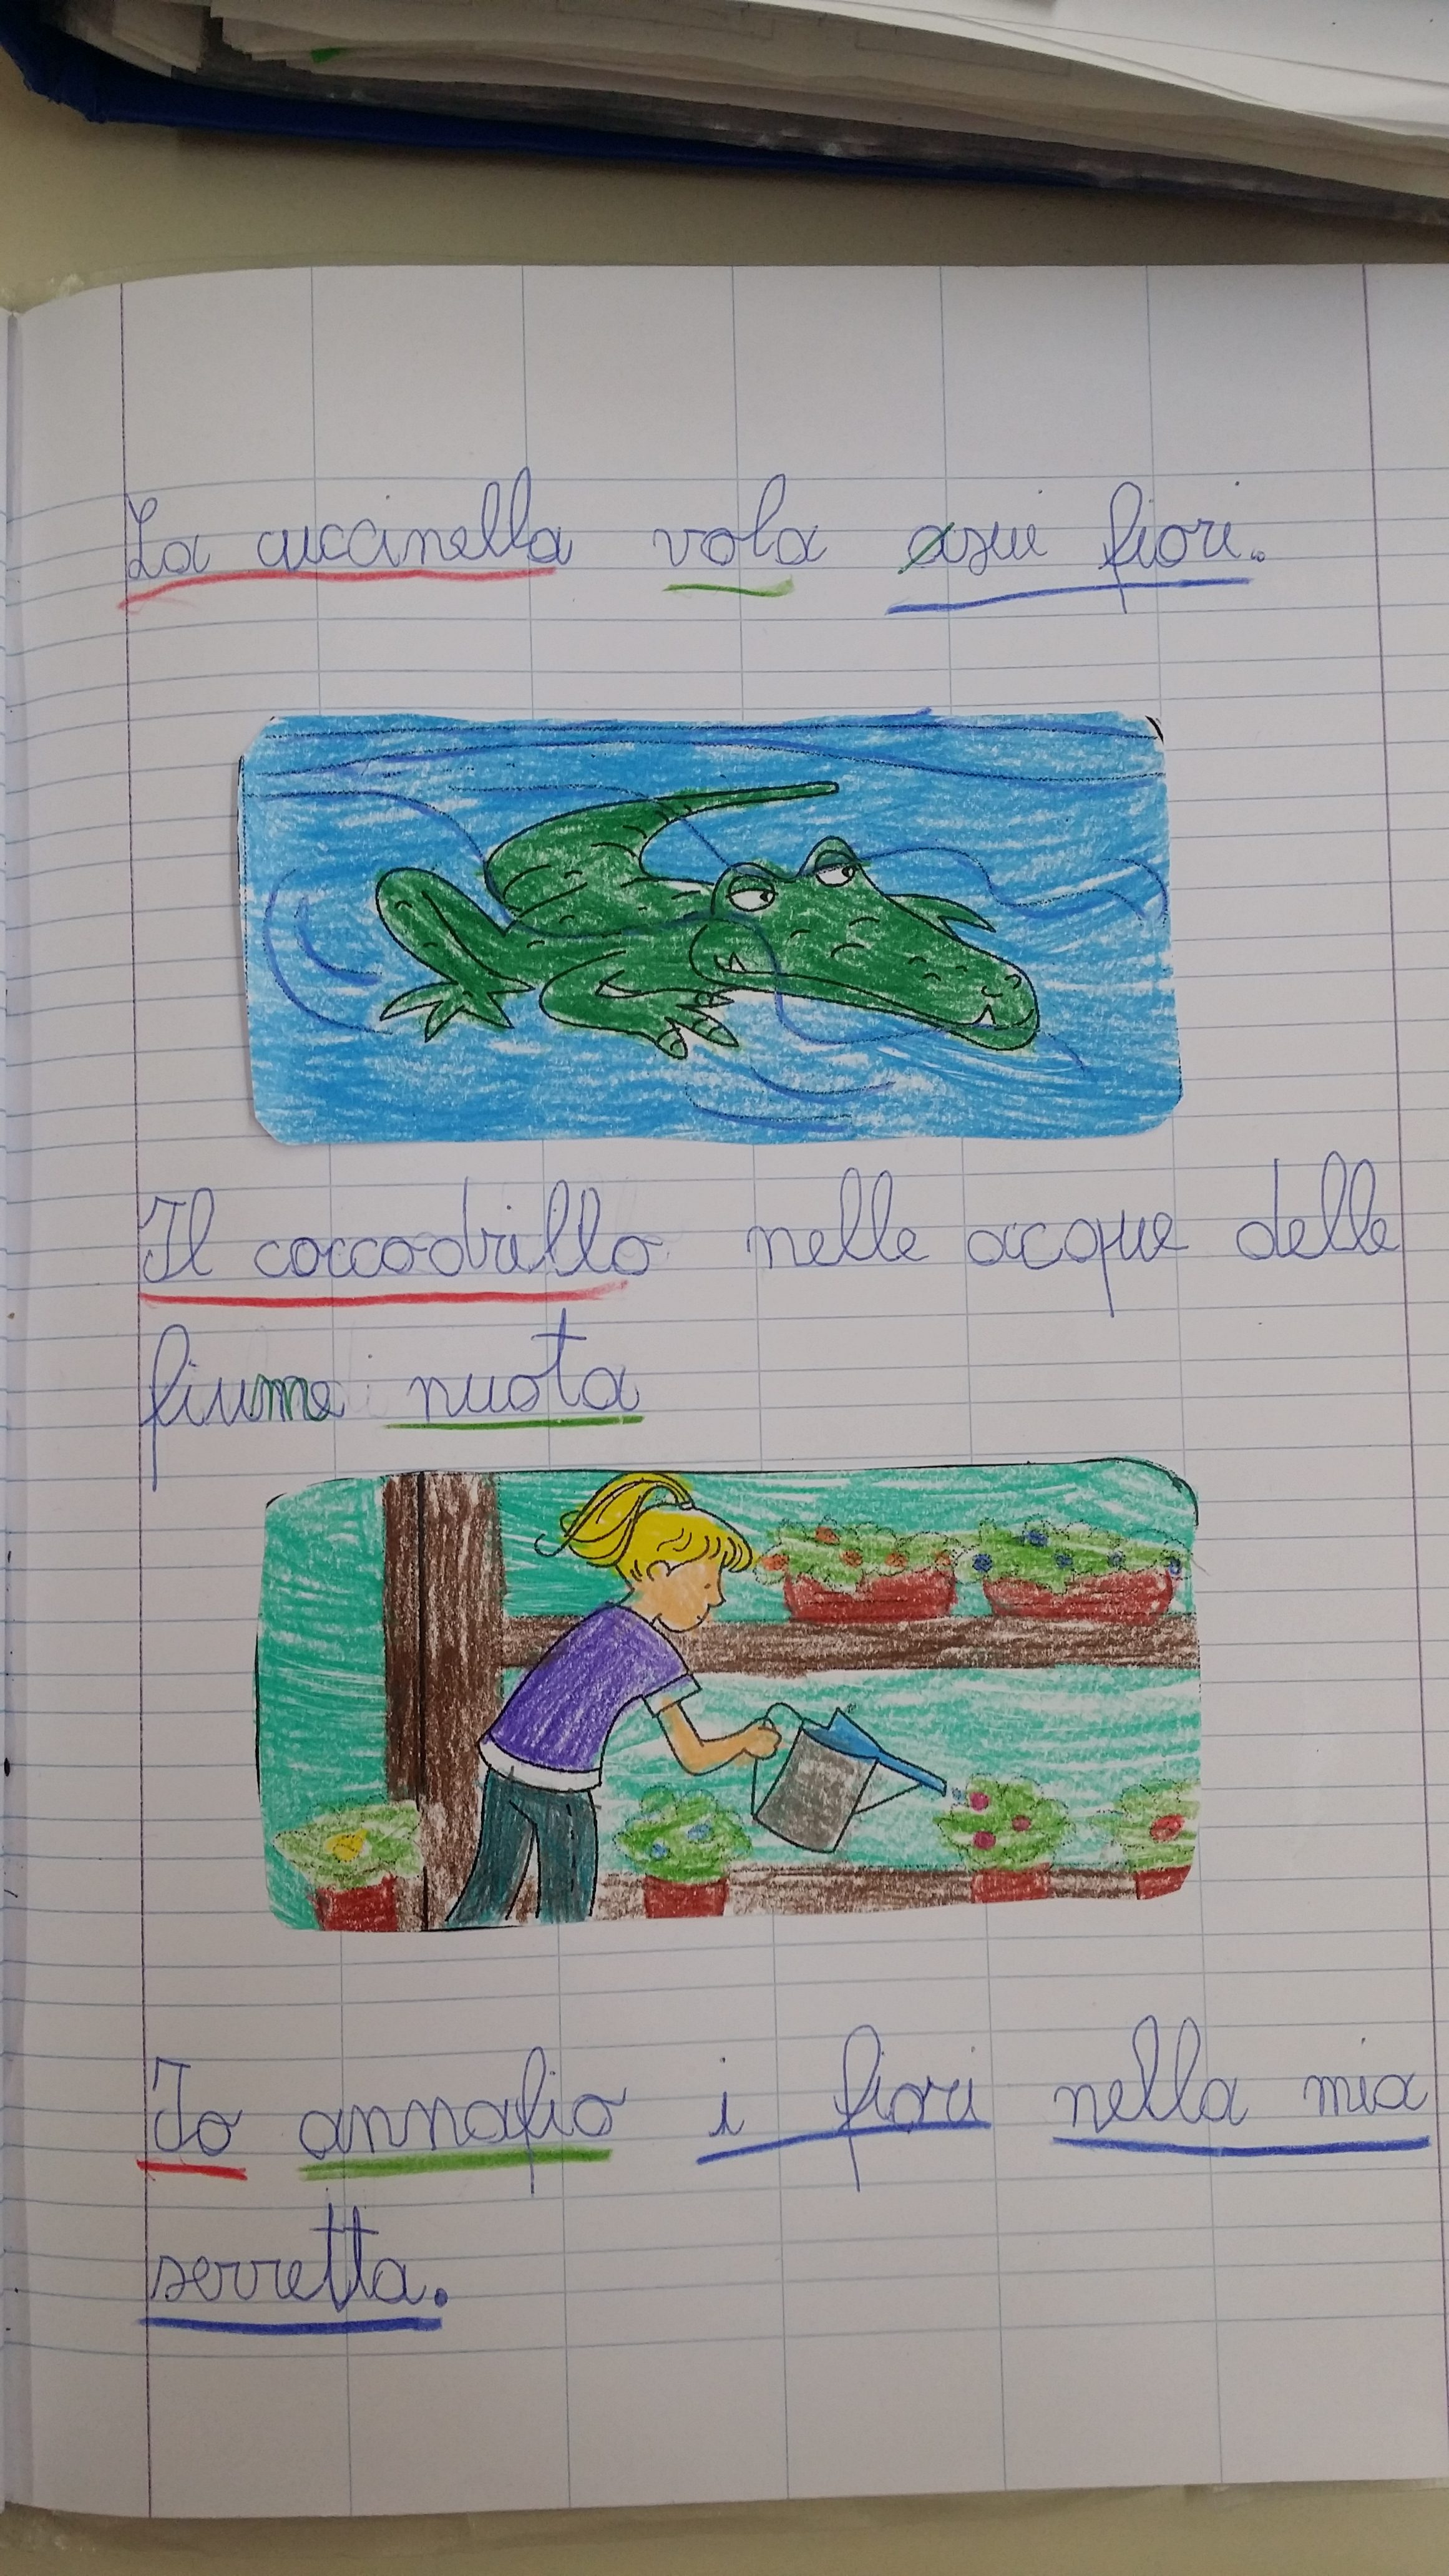 La cuccinella vola sui fiori.
Il coccodrillo nelle acque delle
fiume nuota
Io annafio i fiori nella mia
serretta.